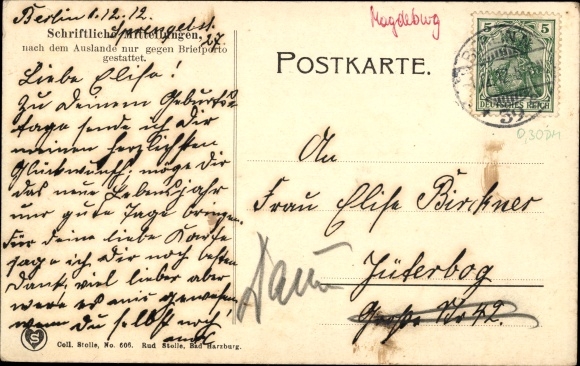 Berlin 6.12.12.
Sprengelstr.
27
Schriftliche Mitteilungen,
nach dem Auslande nur gegen Briefporto
gestattet.
Liebe Elise!
Zu deinem Geburts
tage sende ich Dir
meinen herzlichsten
Glückwunsch; möge dir
das neue Lebensjahr
nur gute Tage bringen.
Für deine liebe Karte
sage ich dir noch besten
Dank, viel lieber aber
wäre es mir gewesen
wenn du selbst noch
Coll. Stolle, No. 606. Rud Stolle, Bad Harzburg.
Magdeburg
POSTKARTE.
5 5
DEUTSCHES REICH
BERLIN
39
0,30 DM
An
Frau Elise Birkner
Jüterbog
No 42.
S